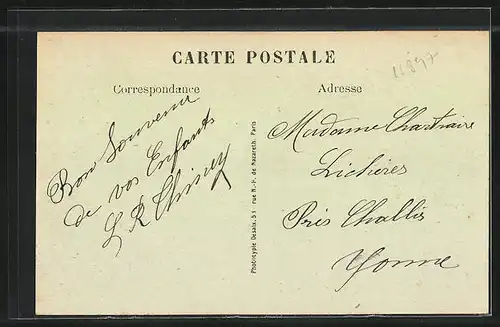 CARTE POSTALE
11847
Correspondance
Adresse
Bon Souvenir
de vos Enfants
L R Chiney
Phototypie Desaix, 51 rue N.-P. de Nazareth, Paris
Madame Chartraire
Lichères
Près Challis
Yonne